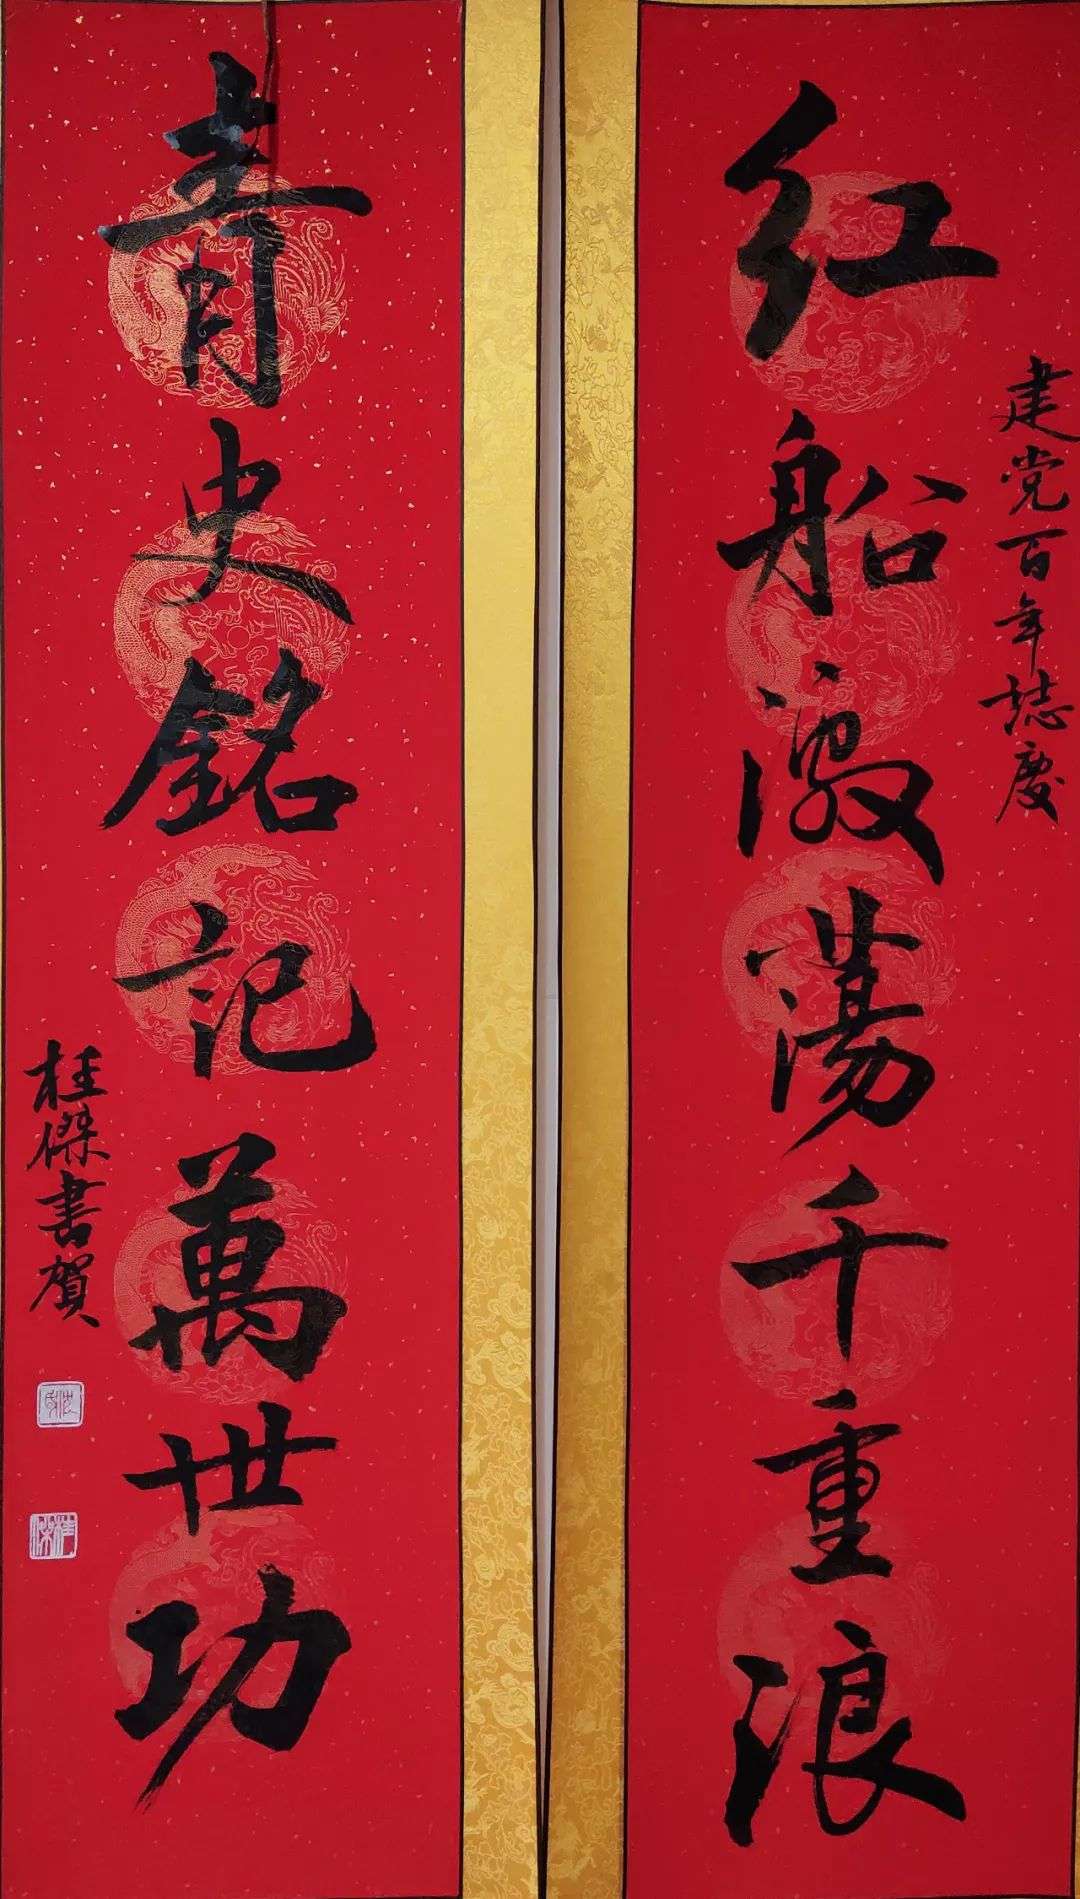 建党百年誌慶
红船激荡千重浪
青史銘記萬世功
桂傑書賀